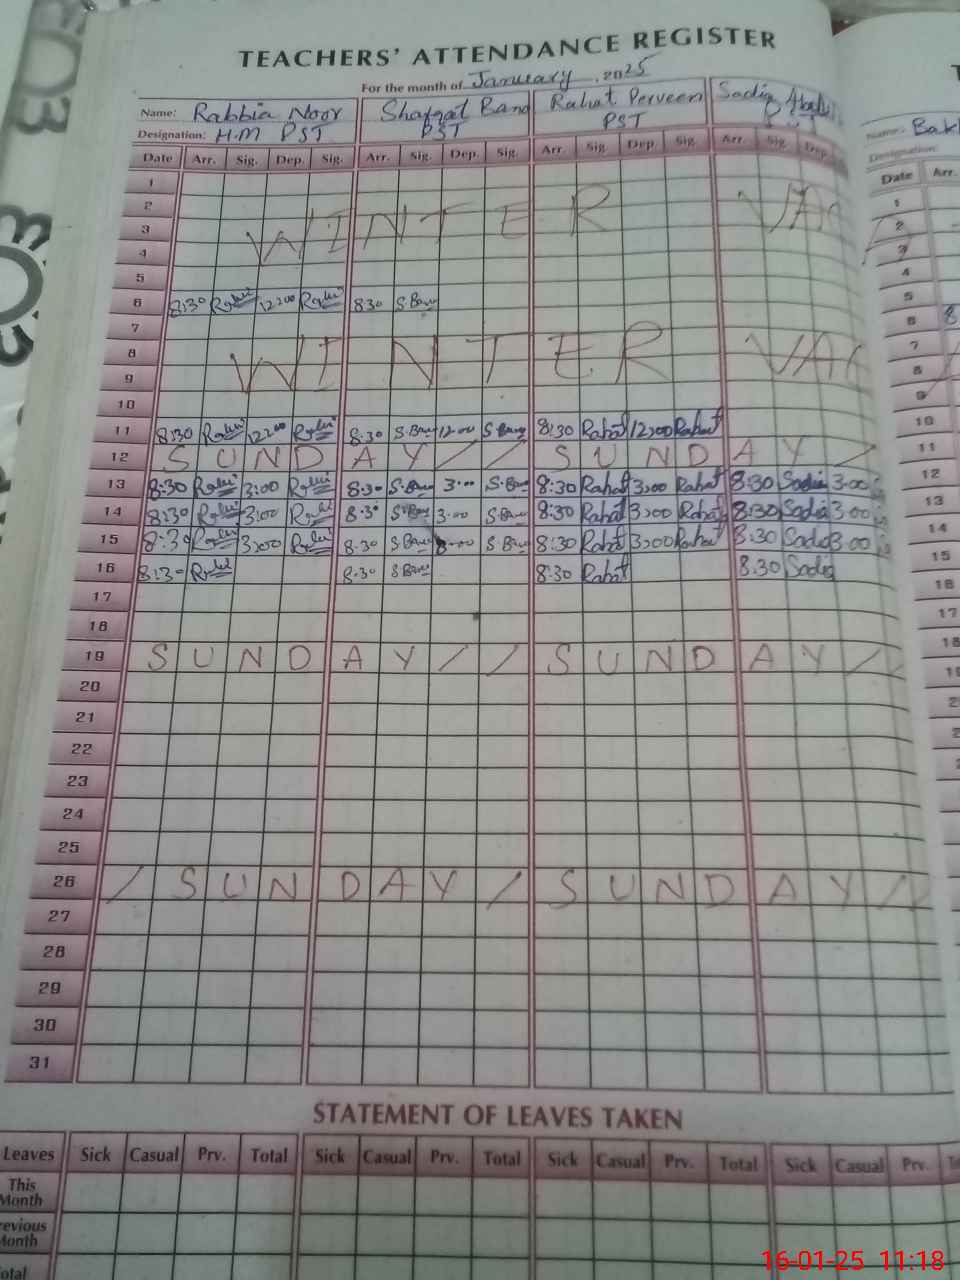 TEACHERS' ATTENDANCE REGISTER
For the month of January, 2025
Name: Rabbia Noor Shafqat Bano Rahat Perveen Sadia
Designation: H.M PST PST PST
Date Arr. Sig. Dep. Sig. Arr. Sig. Dep. Sig. Arr. Sig Dep Sig. Arr. Sig. Dep
1
2
3 WINTER VAC
4
5
6 8:30 Rabi 12:00 Rabi 8:30 S.Bano
7
8 WINTER VAC
9
10
11 8:30 Rabi 12:00 Rabi 8:30 S.Bano 12:00 S.Bano 8:30 Rahat 12:00 Rahat
12 SUNDAY // SUNDAY /
13 8:30 Rabi 3:00 Rabi 8:30 S.Bano 3:00 S.Bano 8:30 Rahat 3:00 Rahat 8:30 Sadia 3:00
14 8:30 Rabi 3:00 Rabi 8:30 S.Bano 3:00 S.Bano 8:30 Rahat 3:00 Rahat 8:30 Sadia 3:00
15 8:30 Rabi 3:00 Rabi 8:30 S.Bano 3:00 S.Bano 8:30 Rahat 3:00 Rahat 8:30 Sadia 3:00
16 8:30 Rabi 8:30 S.Bano 8:30 Rahat 8:30 Sadia
17
18
19 SUNDAY // SUNDAY /
20
21
22
23
24
25
26 / SUNDAY / SUNDAY /
27
28
29
30
31
STATEMENT OF LEAVES TAKEN
Leaves Sick Casual Prv. Total Sick Casual Prv. Total Sick Casual Prv. Total Sick Casual Prv.
This Month
Previous Month
Total
Name: Bakh
Designation:
Date Arr.
1
2
3
4
5
6 8
7
8
9
10
11
12
13
14
15
16
17
18
19
16-01-25 11:18